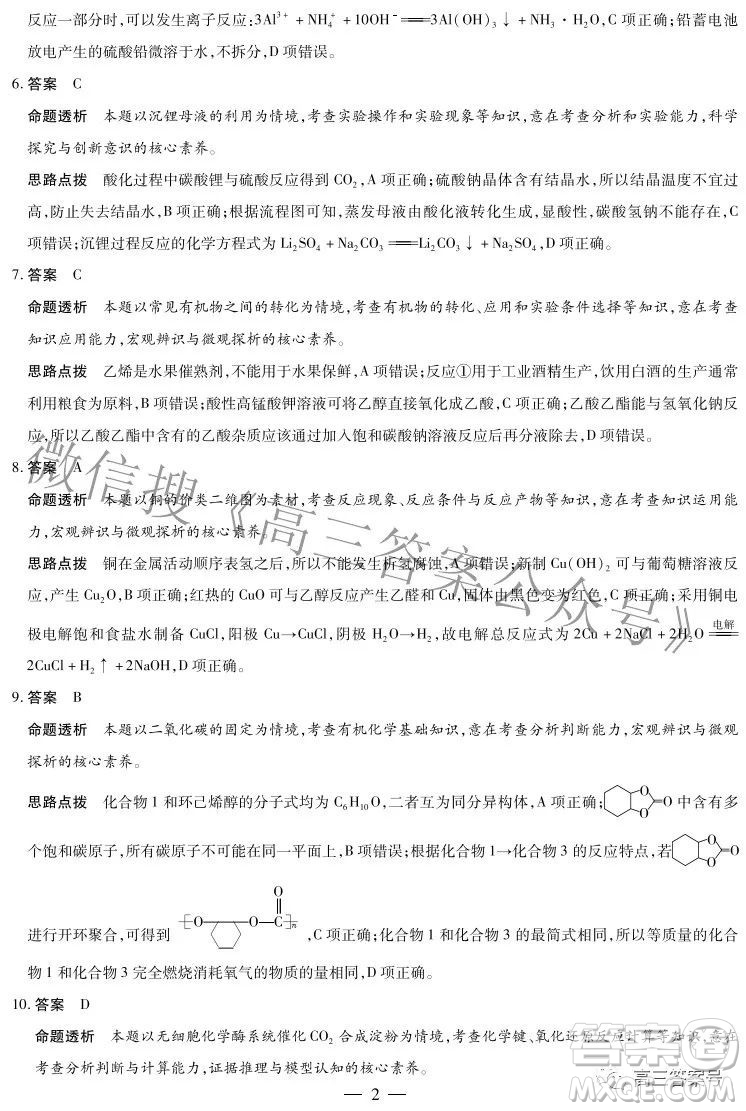 反应一部分时,可以发生离子反应:3Al³⁺+NH₄⁺+10OH⁻══3Al(OH)₃↓+NH₃·H₂O,C项正确;铅蓄电池
放电产生的硫酸铅微溶于水,不拆分,D项错误。
6. 答案 C
命题透析 本题以沉锂母液的利用为情境,考查实验操作和实验现象等知识,意在考查分析和实验能力,科学
探究与创新意识的核心素养。
思路点拨 酸化过程中碳酸锂与硫酸反应得到CO₂,A项正确;硫酸钠晶体含有结晶水,所以结晶温度不宜过
高,防止失去结晶水,B项正确;根据流程图可知,蒸发母液由酸化液转化生成,显酸性,碳酸氢钠不能存在,C
项错误;沉锂过程反应的化学方程式为Li₂SO₄+Na₂CO₃══Li₂CO₃↓+Na₂SO₄,D项正确。
7. 答案 C
命题透析 本题以常见有机物之间的转化为情境,考查有机物的转化、应用和实验条件选择等知识,意在考查
知识应用能力,宏观辨识与微观探析的核心素养。
思路点拨 乙烯是水果催熟剂,不能用于水果保鲜,A项错误;反应①用于工业酒精生产,饮用白酒的生产通常
利用粮食为原料,B项错误;酸性高锰酸钾溶液可将乙醇直接氧化成乙酸,C项正确;乙酸乙酯能与氢氧化钠反
应,所以乙酸乙酯中含有的乙酸杂质应该通过加入饱和碳酸钠溶液反应后再分液除去,D项错误。
8. 答案 A
命题透析 本题以铜的价类二维图为素材,考查反应现象、反应条件与反应产物等知识,意在考查知识运用能
力,宏观辨识与微观探析的核心素养。
思路点拨 铜在金属活动顺序表氢之后,所以不能发生析氢腐蚀,A项错误;新制Cu(OH)₂可与葡萄糖溶液反
应,产生Cu₂O,B项正确;红热的CuO可与乙醇反应产生乙醛和Cu,固体由黑色变为红色,C项正确;采用铜电
极电解饱和食盐水制备CuCl,阳极Cu→CuCl,阴极H₂O→H₂,故电解总反应式为2Cu+2NaCl+2H₂O ══电解
2CuCl+H₂↑+2NaOH,D项正确。
9. 答案 B
命题透析 本题以二氧化碳的固定为情境,考查有机化学基础知识,意在考查分析判断能力,宏观辨识与微观
探析的核心素养。
思路点拨 化合物1和环己烯醇的分子式均为C₆H₁₀O,二者互为同分异构体,A项正确; O O O 中含有多
个饱和碳原子,所有碳原子不可能在同一平面上,B项错误;根据化合物1→化合物3的反应特点,若 O O O
进行开环聚合,可得到 [O O C O]n ,C项正确;化合物1和化合物3的最简式相同,所以等质量的化合
物1和化合物3完全燃烧消耗氧气的物质的量相同,D项正确。
10. 答案 D
命题透析 本题以无细胞化学酶系统催化CO₂合成淀粉为情境,考查化学键、氧化还原反应计算等知识,意在
考查分析判断与计算能力,证据推理与模型认知的核心素养。
— 2 —
微信搜《高三答案公众号》
高三答案号
答案圈
MXQE.COM